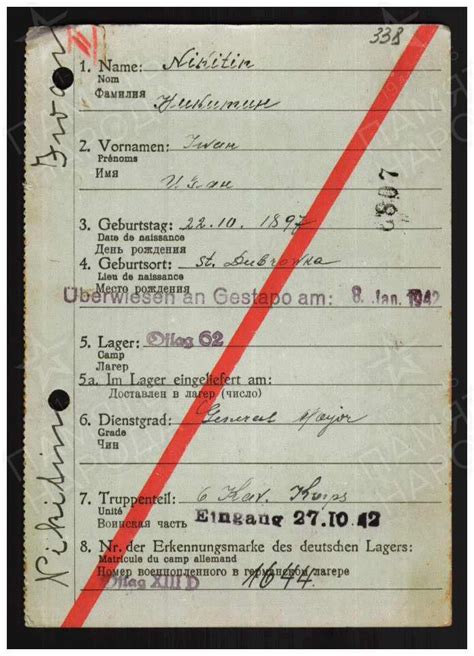 338
1. Name: Nikitin
Nom
Фамилия Никитин
2. Vornamen: Iwan
Prénoms
Имя Иван
6807
3. Geburtstag: 22.10. 1897
Date de naissance
День рождения
4. Geburtsort: st. Dubrowka
Lieu de naissance
Место рождения
Überwiesen an Gestapo am: 8. Jan. 1942
5. Lager: Oflag 62
Camp
Лагерь
5a. Im Lager eingeliefert am:
Доставлен в лагерь (число)
6. Dienstgrad: General Major
Grade
Чин
7. Truppenteil: 6 Kav. Korps
Unité
Воинская часть Eingang 27.10.42
8. Nr. der Erkennungsmarke des deutschen Lagers:
Matricule du camp allemand
Номер военнопленного в германском лагере
Oflag XIII D 1644.
Nikidin Iwan
ПАМЯТЬ
НАРОДА